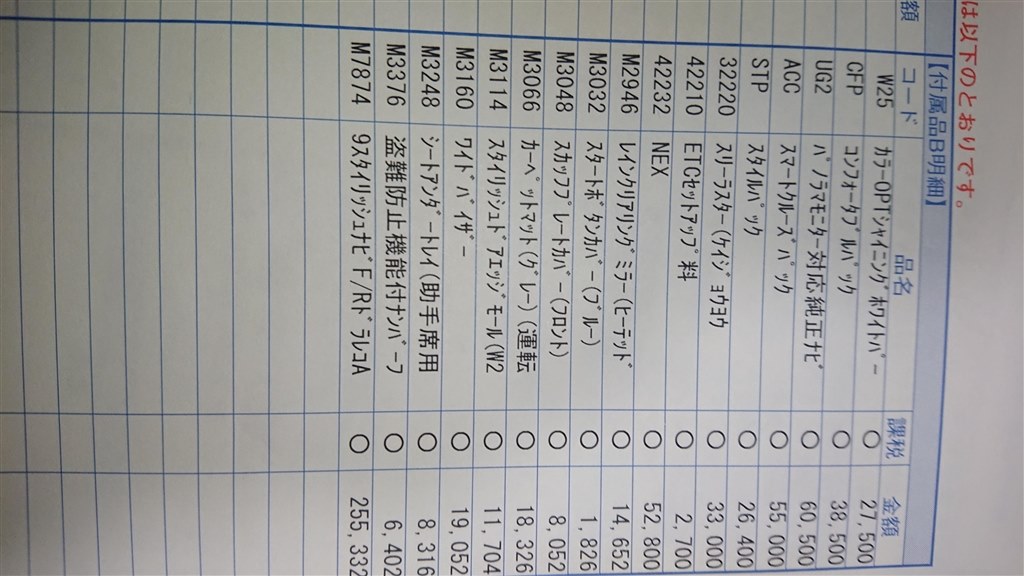 は以下のとおりです。
額
【付属品B明細】
コード 品名 課税 金額
W25 ｶﾗｰOPTｼｬｲﾆﾝｸﾞﾎﾜｲﾄﾊﾟｰ ○ 27,500
CFP ｺﾝﾌｫｰﾀﾌﾞﾙﾊﾟｯｸ ○ 38,500
UG2 ﾊﾟﾉﾗﾏﾓﾆﾀｰ対応純正ﾅﾋﾞ ○ 60,500
ACC ｽﾏｰﾄｸﾙｰｽﾞﾊﾟｯｸ ○ 55,000
STP ｽﾀｲﾙﾊﾟｯｸ ○ 26,400
32220 ｽﾘｰﾗｽﾀｰ(ｹｲｼﾞｮｳﾖｳ ○ 33,000
42210 ETCｾｯﾄｱｯﾌﾟ料 ○ 2,700
42232 NEX ○ 52,800
M2946 ﾚｲﾝｸﾘｱﾘﾝｸﾞﾐﾗｰ(ﾋｰﾃｯﾄﾞ ○ 14,652
M3032 ｽﾀｰﾄﾎﾞﾀﾝｶﾊﾞｰ(ﾌﾞﾙｰ) ○ 1,826
M3048 ｽｶｯﾌﾌﾟﾚｰﾄｶﾊﾞｰ(ﾌﾛﾝﾄ) ○ 8,052
M3066 ｶｰﾍﾟｯﾄﾏｯﾄ(ｸﾞﾚｰ)(運転 ○ 18,326
M3114 ｽﾀｲﾘｯｼｭﾄﾞｱｴｯｼﾞﾓｰﾙ(W2 ○ 11,704
M3160 ﾜｲﾄﾞﾊﾞｲｻﾞｰ ○ 19,052
M3248 ｼｰﾄｱﾝﾀﾞｰﾄﾚｲ(助手席用 ○ 8,316
M3376 盗難防止機能付ﾅﾝﾊﾞｰﾌ ○ 6,402
M7874 9ｽﾀｲﾘｯｼｭﾅﾋﾞF/RﾄﾞﾗﾚｺA ○ 255,332